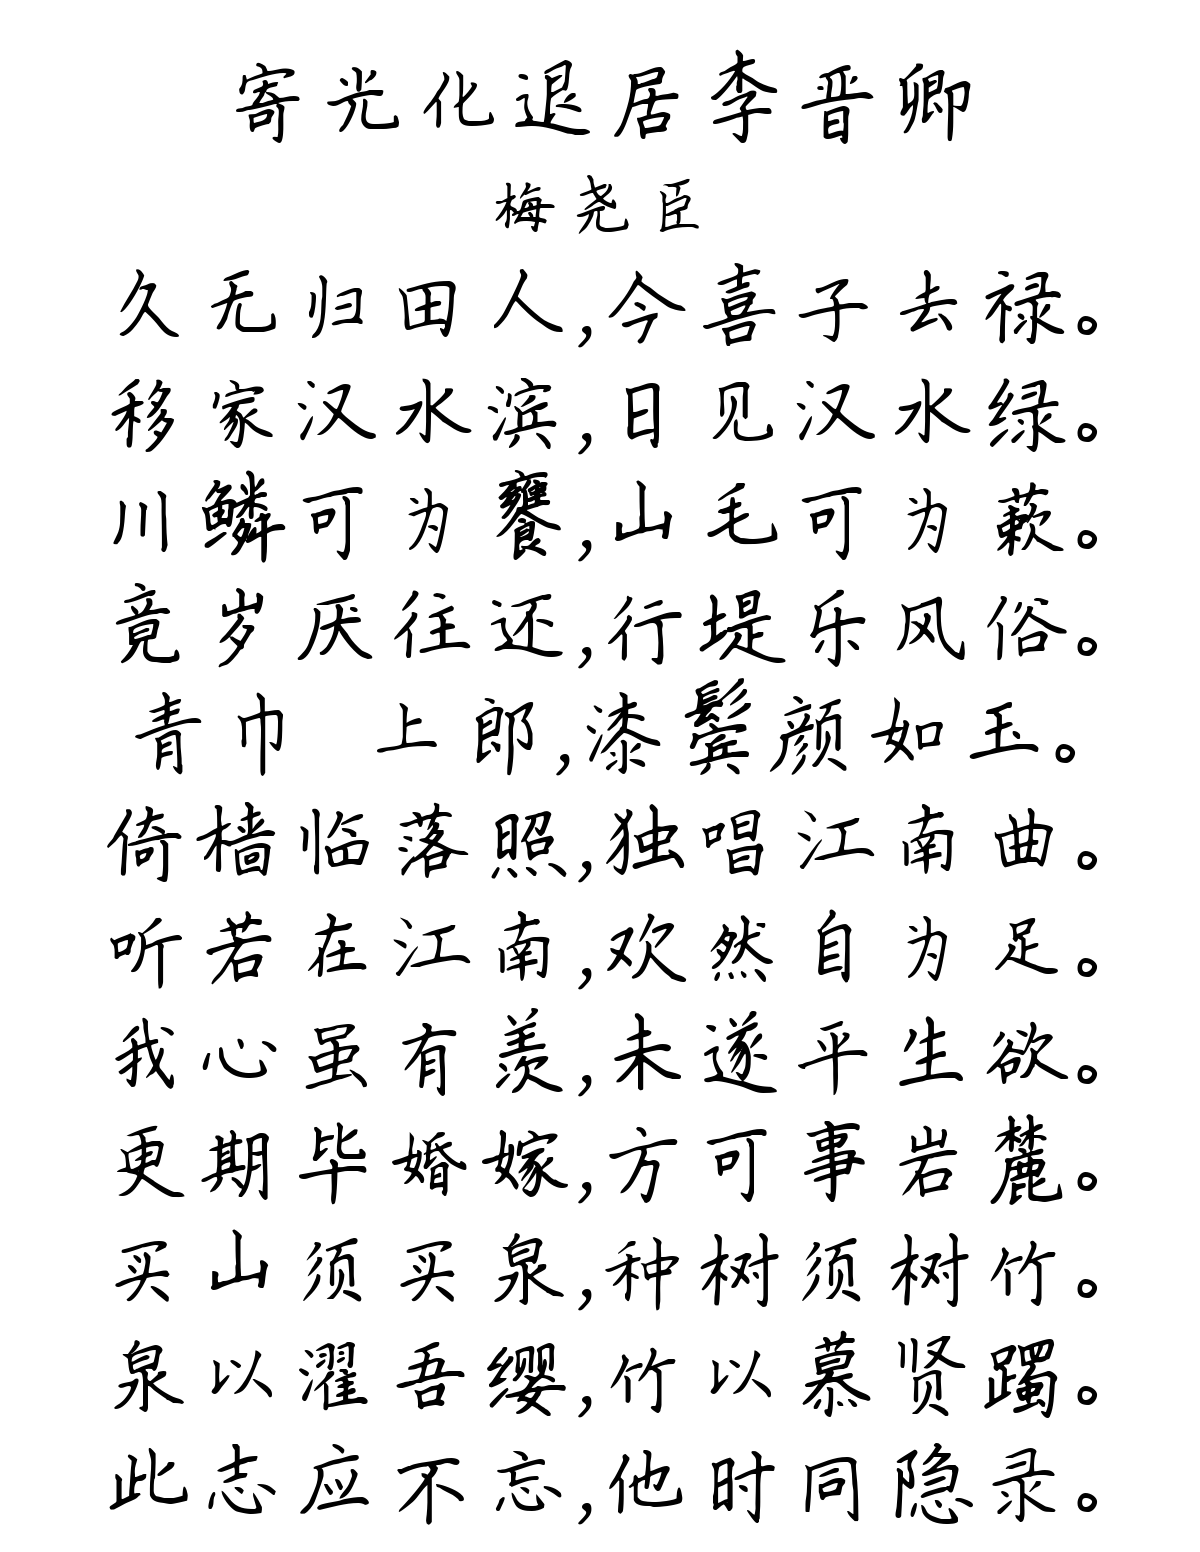 寄光化退居李晋卿
梅尧臣
久无归田人,今喜子去禄。
移家汉水滨,日见汉水绿。
川鳞可为饔,山毛可为蔌。
竟岁厌往还,行堤乐风俗。
青巾 上郎,漆鬓颜如玉。
倚樯临落照,独唱江南曲。
听若在江南,欢然自为足。
我心虽有羡,未遂平生欲。
更期毕婚嫁,方可事岩麓。
买山须买泉,种树须树竹。
泉以濯吾缨,竹以慕贤躅。
此志应不忘,他时同隐录。